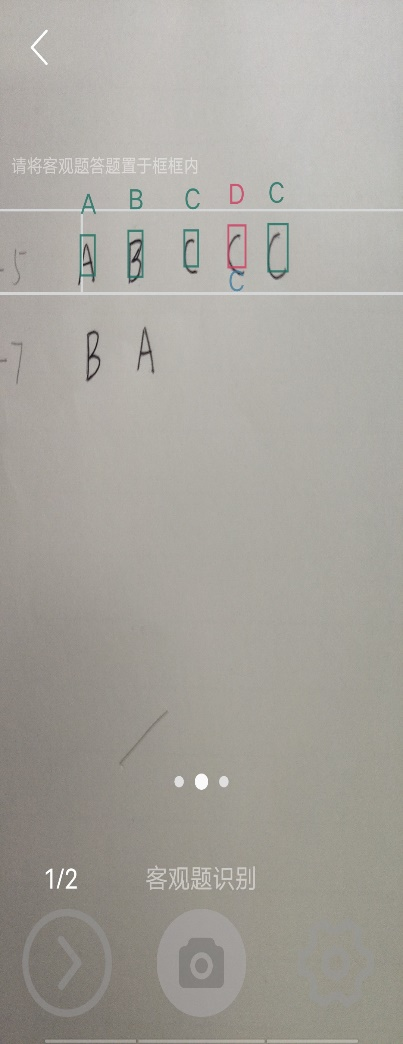 请将客观题答题置于框框内
A B C D C
-5 A B C C C
C
-7 B A
1/2 客观题识别